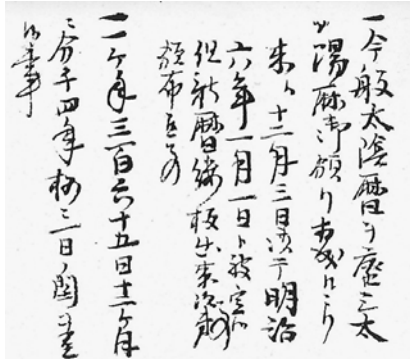 一今般太陰暦ヲ廃シ太
陽暦御頒行相成候ニ付
来ル十二月三日ヲ以テ明治
六年一月一日ト被定候
但新暦鏤板出来次第
頒布候事
一一ケ年三百六十五日十二ケ月
ニ分チ四年毎ニ一日ノ閏ヲ置
候事